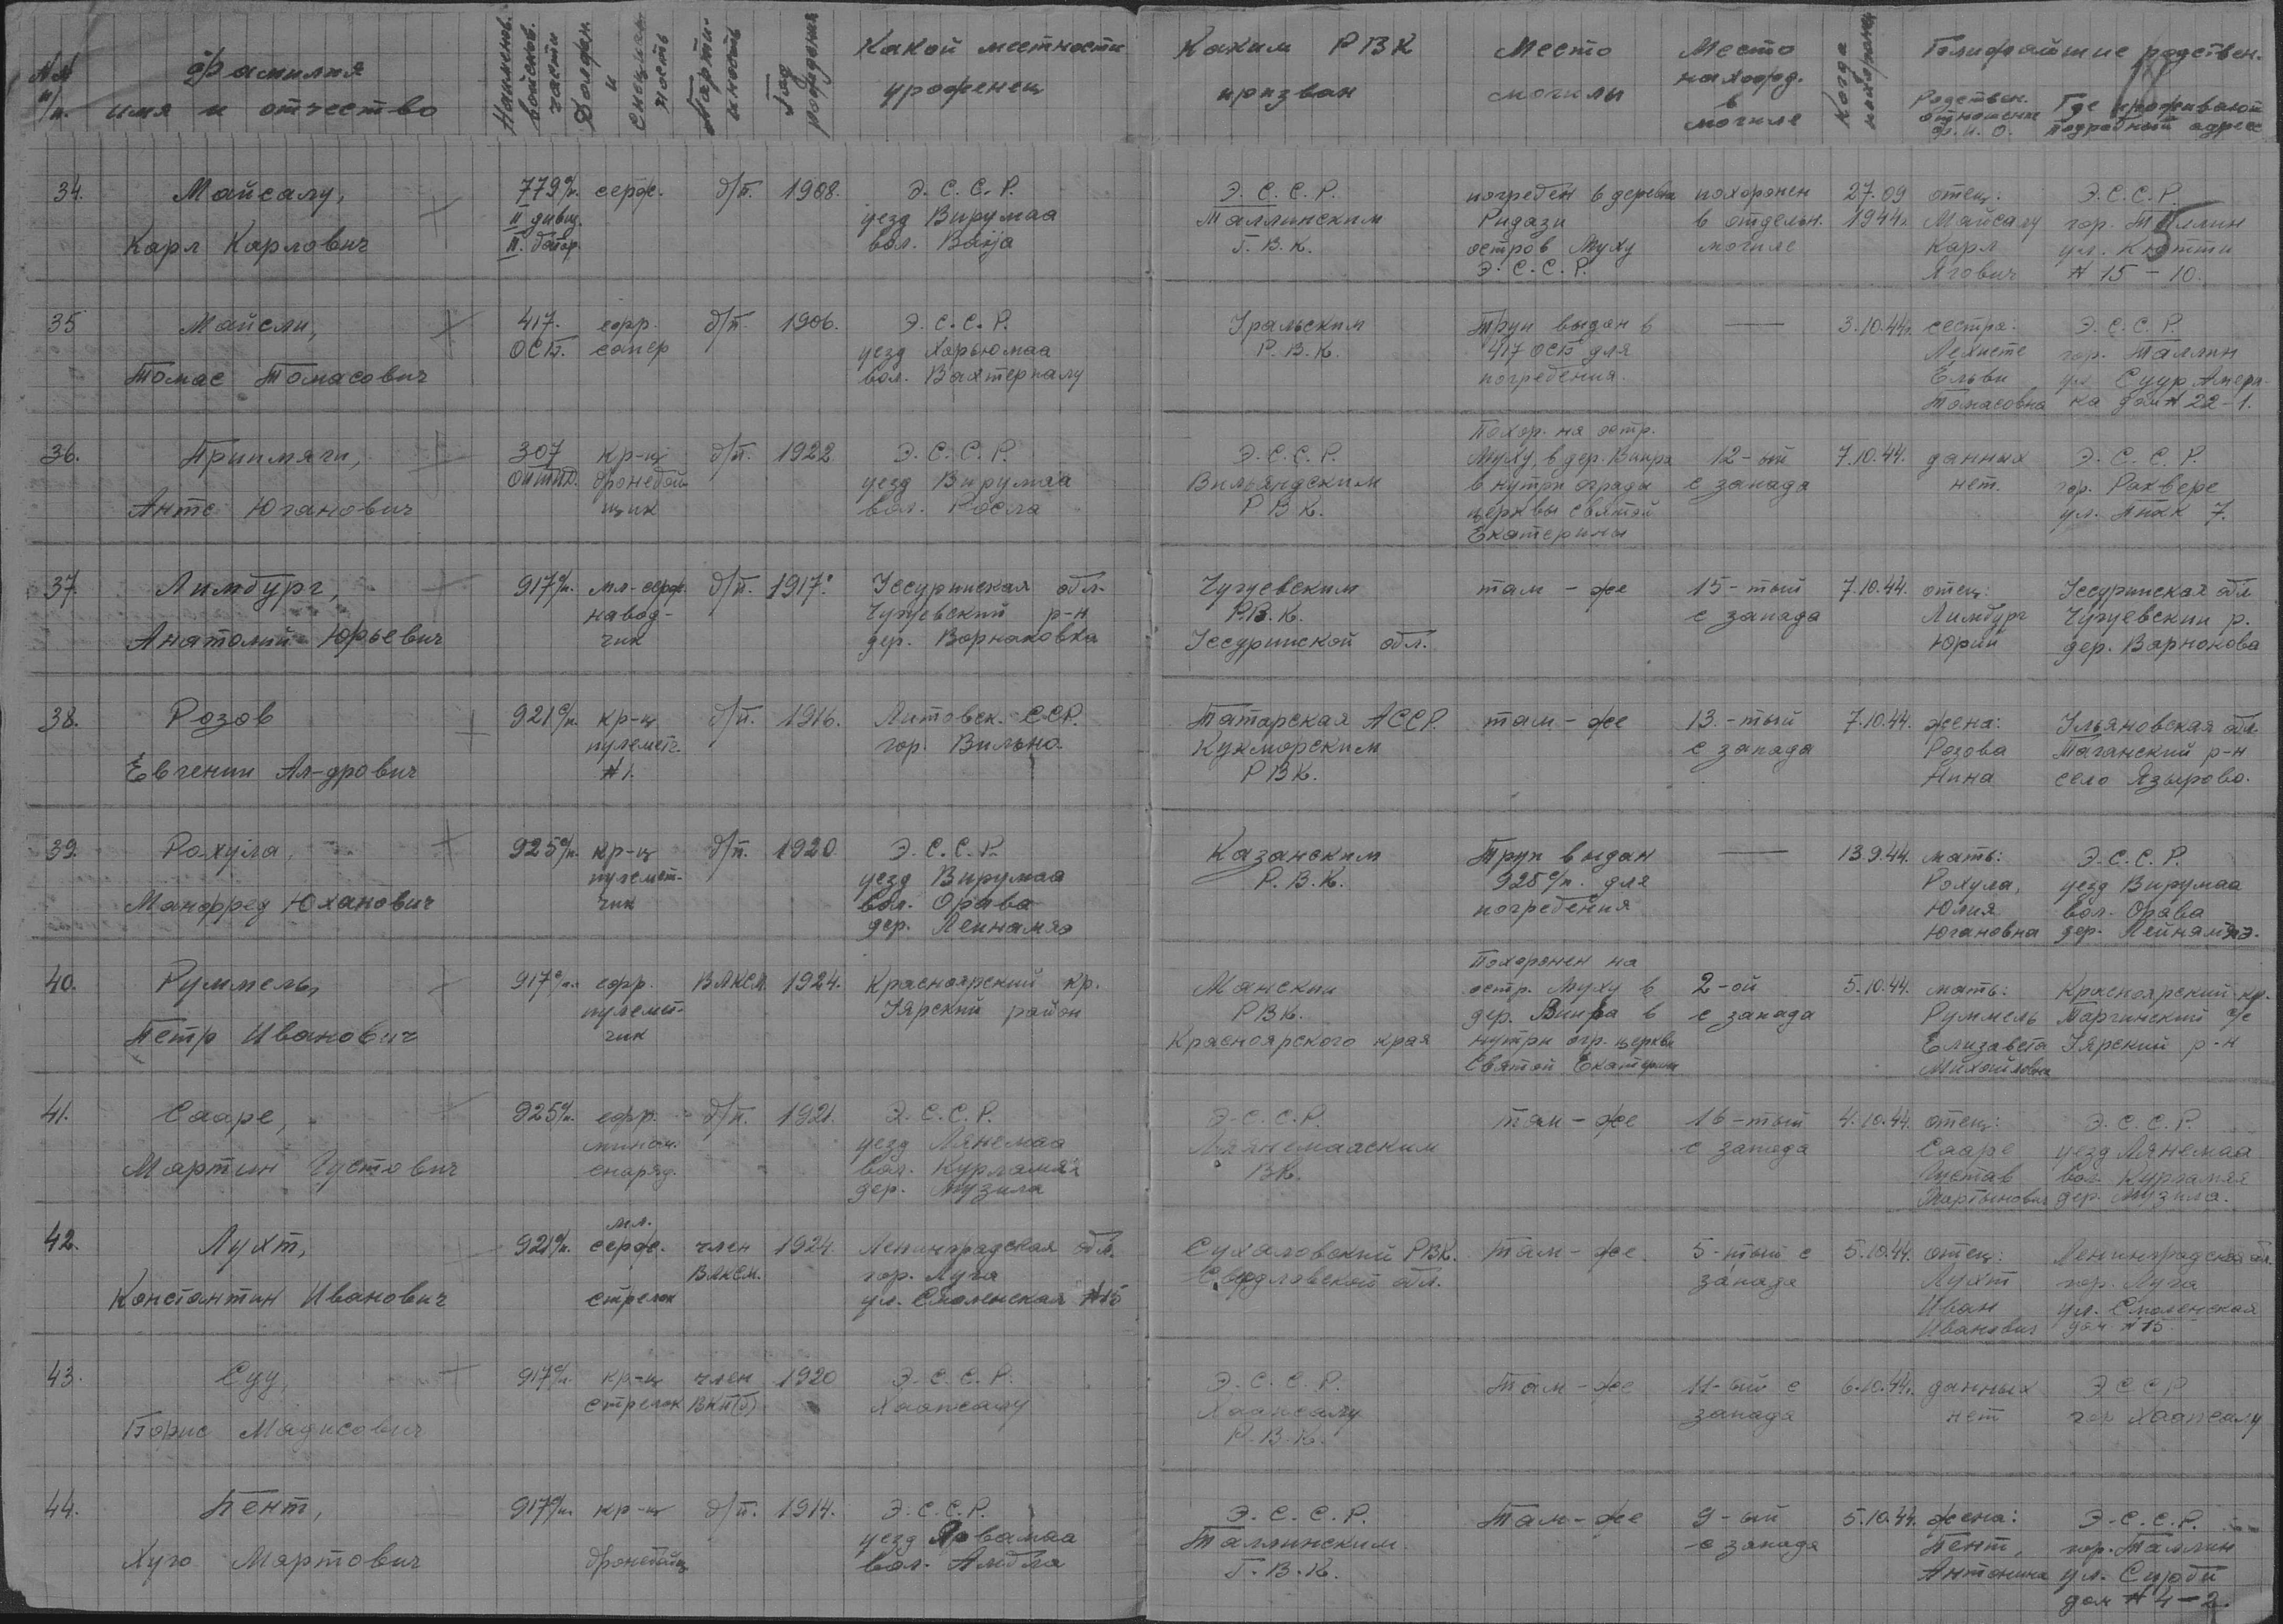 №№ п/п. Фамилия имя и отчество Наименов. войсков. части Должн. и специальность Партийность Год рождения Какой местности уроженец Каким РВК призван Место могилы Место наход. в могиле Когда похоронен Ближайшие родствен.
Родствен. отношение ф. и. о. Где проживают подробный адрес
34. Майсалу, 779 с/п. серж. б/п. 1908. Э. С. С. Р. Э. С. С. Р. погребен в деревне похоронен 27.09 отец: Э.С.С.Р.
II дивиз. уезд Вирумаа Таллинским Ридази в отдельн. 1944г. Майсалу гор. Таллин
Карл Карлович II. батар. вол. Вайја Г. В. К. остров Муху могиле Карл ул. Кютти
Э. С. С. Р. Ягович № 15 – 10.
35 Майсли, 417. ефр. б/п. 1906. Э. С. С. Р. Уральским Труп выдан в — 3.10.44г. сестра: Э. С. С. Р.
ОСБ. сапер уезд Харьюмаа Р. В. К. 417 ОСБ для Лехисте гор. Таллин
Томас Томасович вол. Вахтерпалу погребения. Ельви ул. Суур Амери-
Томасовна ка дом № 22–1.
Похор. на остр.
36. Принмяги, 307 кр-ц б/п. 1922 Э. С. С. Р. Э.С.С.Р. Муху, в дер. Виира 12–ый 7.10.44. данных Э. С. С. Р.
ОИПТД. бронебой- уезд Вирумаа Вильяндским в нутри ограды с запада нет. гор. Раквере
Антс Юганович щик вол. Роела Р В К. церквы святой ул. Пикк 7.
Екатерины
37. Лимбург, 917 с/п. мл-серж. б/п. 1917. Уссуринская обл. Чугуевским там – же 15–тый 7.10.44. отец: Уссуринская обл.
навод- Чугуевский р–н Р.В.К. с запада Лимбург Чугуевский р.
Анатолий Юрьевич чик дер. Варнаковка Уссуринской обл. Юрий дер. Варнокова
38. Розов 921 с/п. кр-ц б/п. 1916. Литовск. ССР. Татарская АССР. там – же 13.–тый 7.10.44. жена: Ульяновская обл.
пулемет. гор. Вильно. Кукморским с запада Розова Таганский р–н
Евгении Ал-дрович №1. РВК. Нина село Язырово.
39. Рохула, 925 с/п. кр-ц б/п. 1920. Э. С. С. Р. Казанским Труп выдан — 13.9.44. мать: Э. С. С. Р.
пулемет- уезд Вирумаа Р. В. К. 925 с/п. для Рохула, уезд Вирумаа
Манфред Юханович чик вол. Орава погребения Юлия вол. Орава
дер. Лейнамяэ Югановна дер. Лейнамяэ.
Похоронен на
40. Руммель, 917 с/п. ефр. ВЛКСМ 1924. Красноярский кр. Манский остр. Муху в 2–ой 5.10.44. мать: Красноярский кр.
пулемет- Уярский район РВК. дер. Виира в с запада Руммель Таргинский с/с
Петр Иванович чик Красноярского края нутри огр. церкви Елизавета Уярский р–н
Святой Екатерины Михайловна
41. Сааре, 925 с/п. ефр. б/п. 1921. Э. С. С. Р. Э. С. С. Р. там – же 16–тый 4.10.44. отец: Э. С. С. Р.
уезд Лянемаа Ляянемааским с запада Сааре уезд Лянемаа
Мартин Густович снаряд. вол. Курламяя ВК. Густав вол. Курламяя
дер. Музила Мартынович дер. Музила.
мл.
42. Лухт, 921 с/п. серж. член 1924. Ленинградская обл. Сухоловский РВК. там – же 5–тый с 5.10.44. отец: Ленинградская обл.
ВЛКСМ. гор. Луга Свердловской обл. запада Лухт гор. Луга
Константин Иванович стрелок ул. Смоленская №15 Иван ул. Смоленская
Иванович дом №15
43. Суу, 917 с/п. кр-ц член 1920 Э. С. С. Р. Э. С. С. Р. там – же 11–ый с 6.10.44г. данных Э С С Р
стрелок ВКП(б) Хаапсалу Хаапсалу запада нет гор Хаапсалу
Борис Мадисович Р. В. К.
44. Пент, 917 с/п. кр-ц б/п. 1914. Э. С. С. Р. Э. С. С. Р. Там – же 9–ый 5.10.44. жена: Э. С. С. Р.
уезд Ярвамаа Таллинским с запада Пент, гор. Таллин
Хуго Мартович бронебойщ вол. Амбла Г. В. К. Антонина ул.
дом № 4–2.